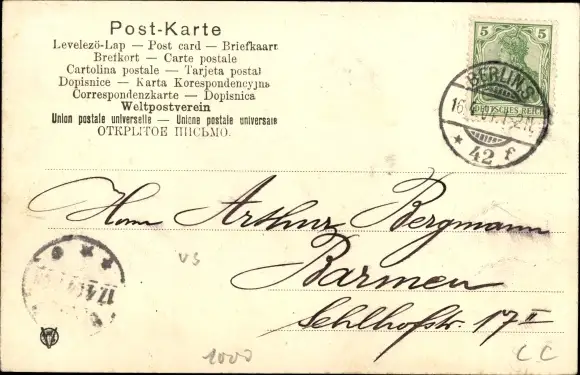 Post-Karte
Levelező-Lap — Post card — Briefkaart
Brefkort — Carte postale
Cartolina postale — Tarjeta postal
Dopisnice — Karta Korespondencyjna
Correspondenzkarte — Dopisnica
Weltpostverein
Union postale universelle — Unione postale universale
ОТКРЫТОЕ ПИСЬМО.
5 5
DEUTSCHES REICH
BERLIN.S.
* 42 f
Herrn Arthur Bergmann
Barmen
Sehlhofstr. 17 II
VS
1000
CC